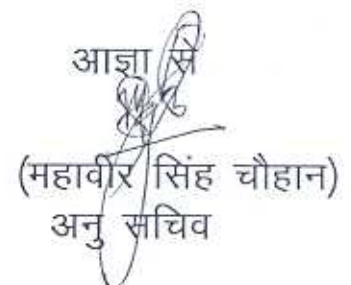 आज्ञा से
(महावीर सिंह चौहान)
अनु सचिव